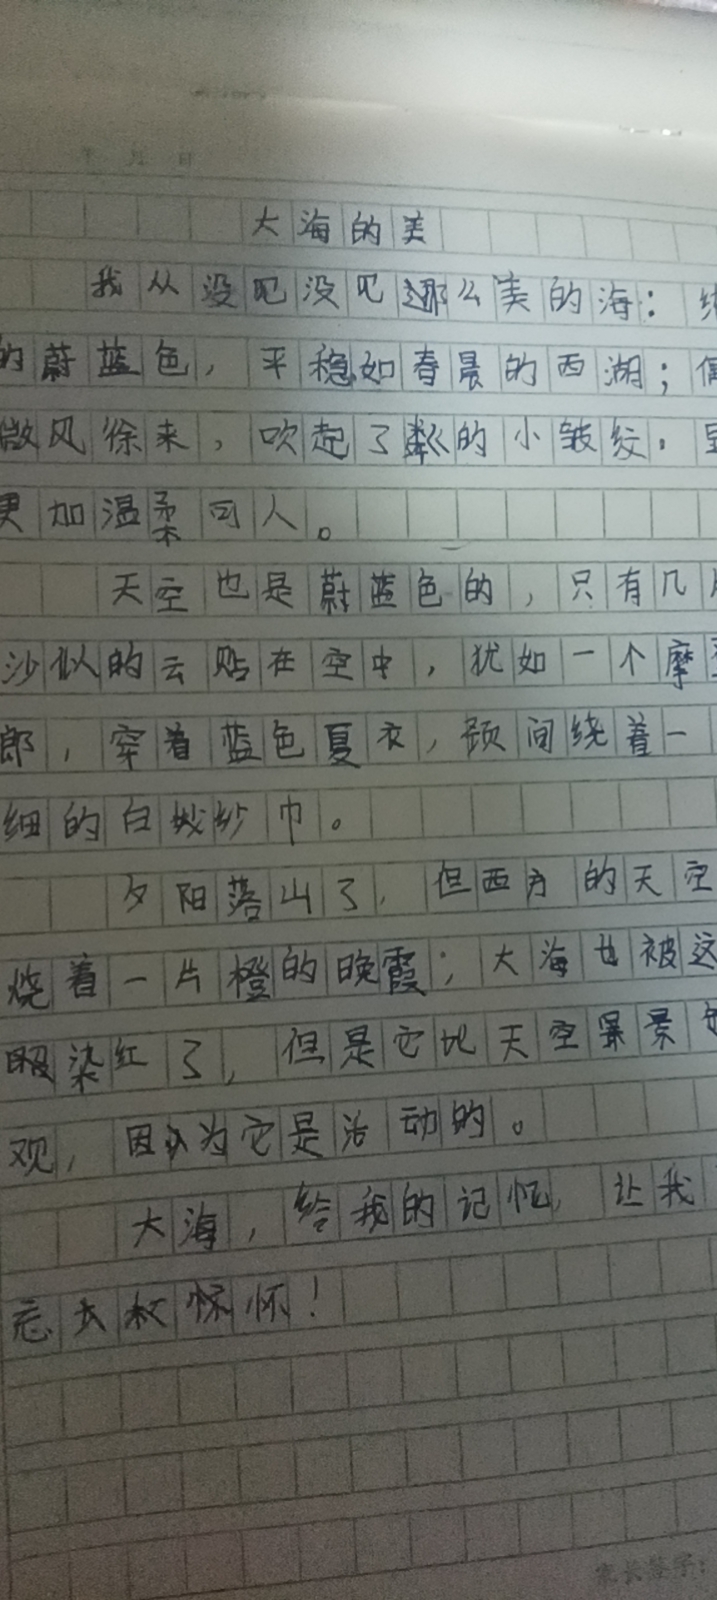 年 月 日
大海的美
我从没见没见过那么美的海：
的蔚蓝色，平稳如春晨的西湖；偶
微风徐来，吹起了粼粼的小皱纹。显
更加温柔可人。
天空也是蔚蓝色的，只有几
沙似的云贴在空中，犹如一个摩
郎，穿着蓝色夏衣，颈间绕着一
细的白纱巾。
夕阳落山了，但西方的天空
烧着一片橙的晚霞；大海也被这
染红了，但是它比天空景
观，因为它是活动的。
大海，给我的记忆，让我
忘怀！
家长签字：